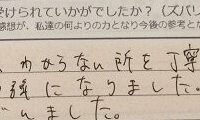 受けられていかがでしたか？（ズバリ
感想が、私達の何よりの力となり今後の参考とな
、わからない所を丁寧
強になりました。
いました。